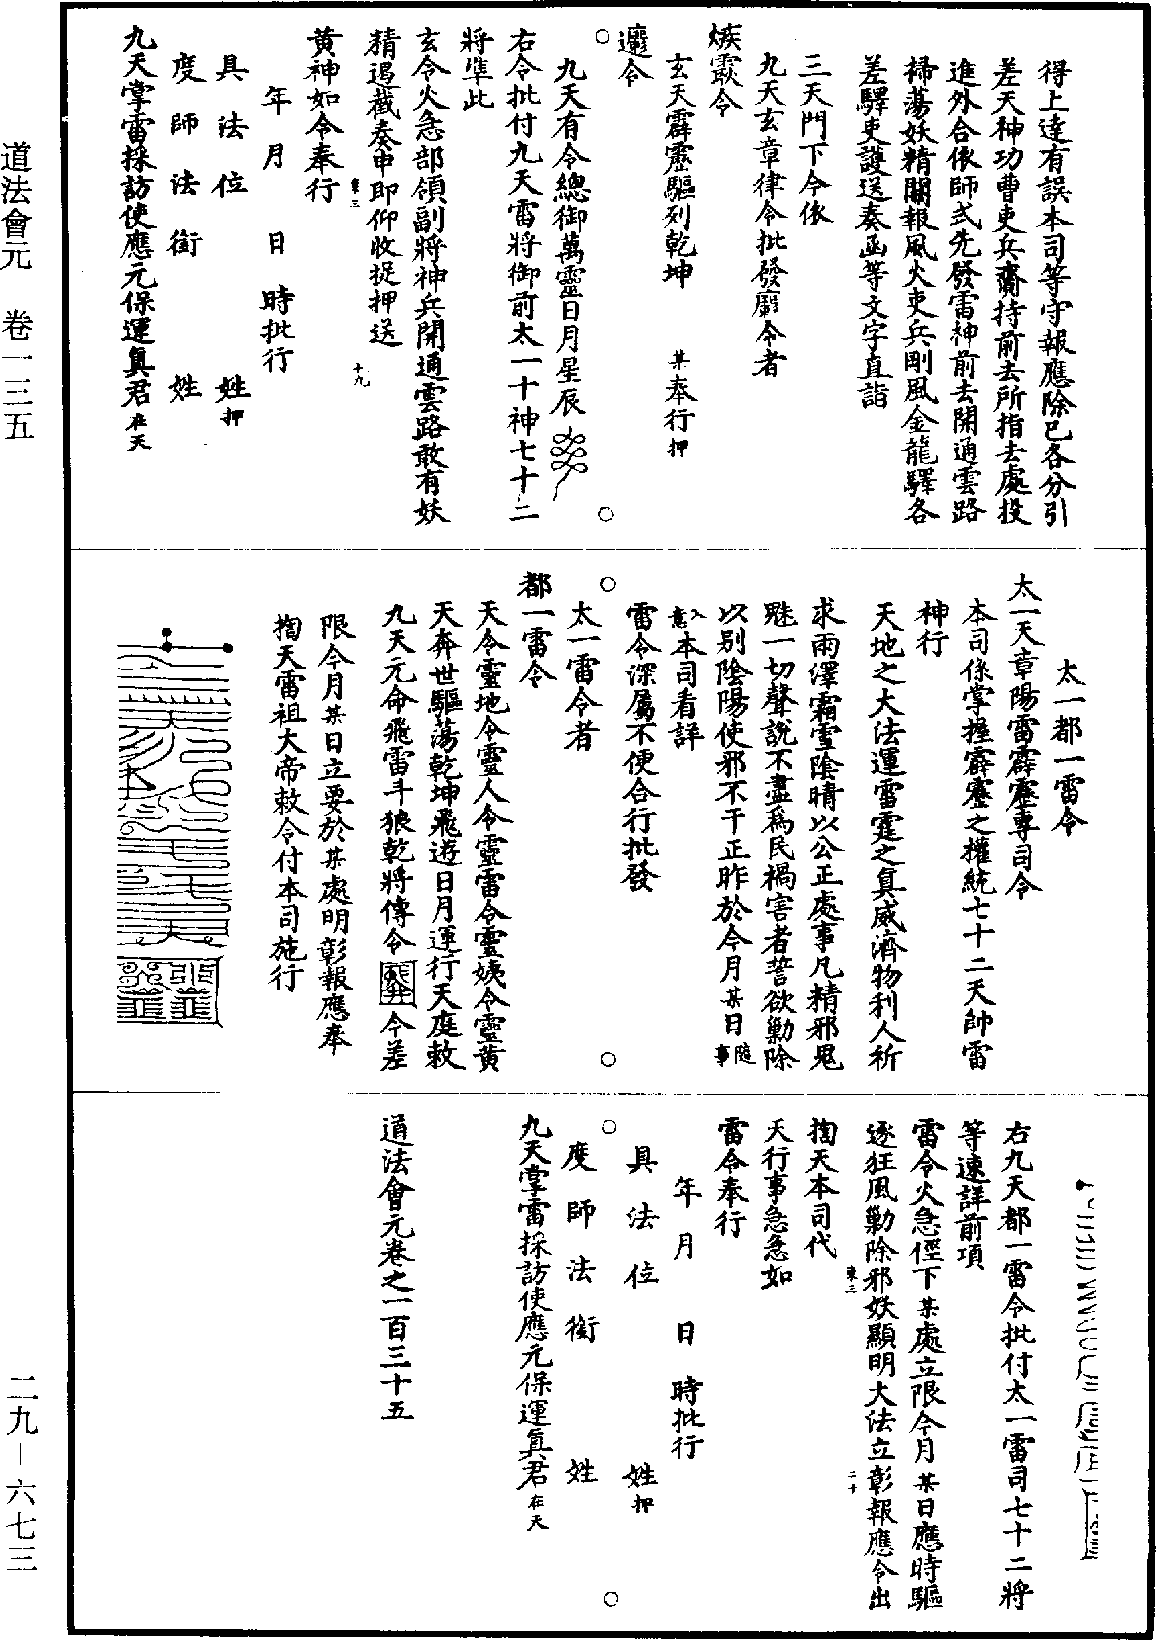 得上達有誤本司等守報應除已各分引
差天神功曹吏兵齎持前去所指去處投
進外合依師式先發雷神前去開通雲路
掃蕩妖精關報風火吏兵剛風金龍驛各
差驛吏護送奏函等文字直詣
三天門下令依
九天玄章律令批發令者
令
玄天霹靂驅列乾坤 某奉行押
令
九天有令總御萬靈日月星辰
右令批付九天雷將御前太一十神七十二
將準此
玄令火急部領副將神兵開通雲路敢有妖
精遏截奏申即仰收捉押送
黃神如令奉行
年 月 日 時批行
具 法 位 姓押
度 師 法 銜 姓
九天掌雷採訪使應元保運真君在天
太一都一雷令
太一天章陽雷霹靂專司令
本司係掌握霹靂之權統七十二天帥雷
神行
天地之大法運雷霆之真威濟物利人祈
求雨澤霜雪陰晴以公正處事凡精邪鬼
魅一切聲說不盡為民禍害者誓欲勦除
以別陰陽使邪不干正昨於今月某日隨事
入意本司看詳
雷令深屬不便合行批發
太一雷令者
都一雷令
天令靈地令靈人令靈雷令靈姨令靈黃
天奔世驅蕩乾坤飛遊日月運行天庭敕
九天元命飛雷斗狼乾將傳令 令差
限今月某日立要於某處明彰報應奉
掏天雷祖大帝敕令付本司施行
右九天都一雷令批付太一雷司七十二將
等速詳前項
雷令火急徑下某處立限今月某日應時驅
逐狂風勦除邪妖顯明大法立彰報應令出
掏天本司代
天行事急急如
雷令奉行
年 月 日 時批行
具 法 位 姓押
度 師 法 銜 姓
九天掌雷採訪使應元保運真君在天
道法會元卷之一百三十五
道法會元 卷一三五
二九—六七三